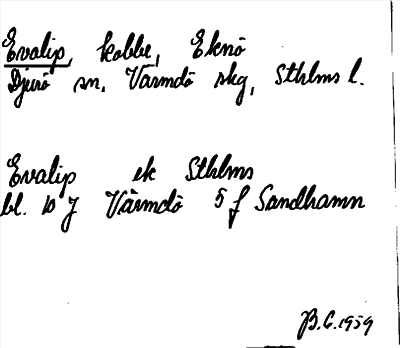 Evalip, kobbe, Eknö
Djurö sn, Värmdö skg, Sthlms l.
Evalip ek Sthlms
bl. 10 J Värmdö 5 f Sandhamn
B.G. 1959